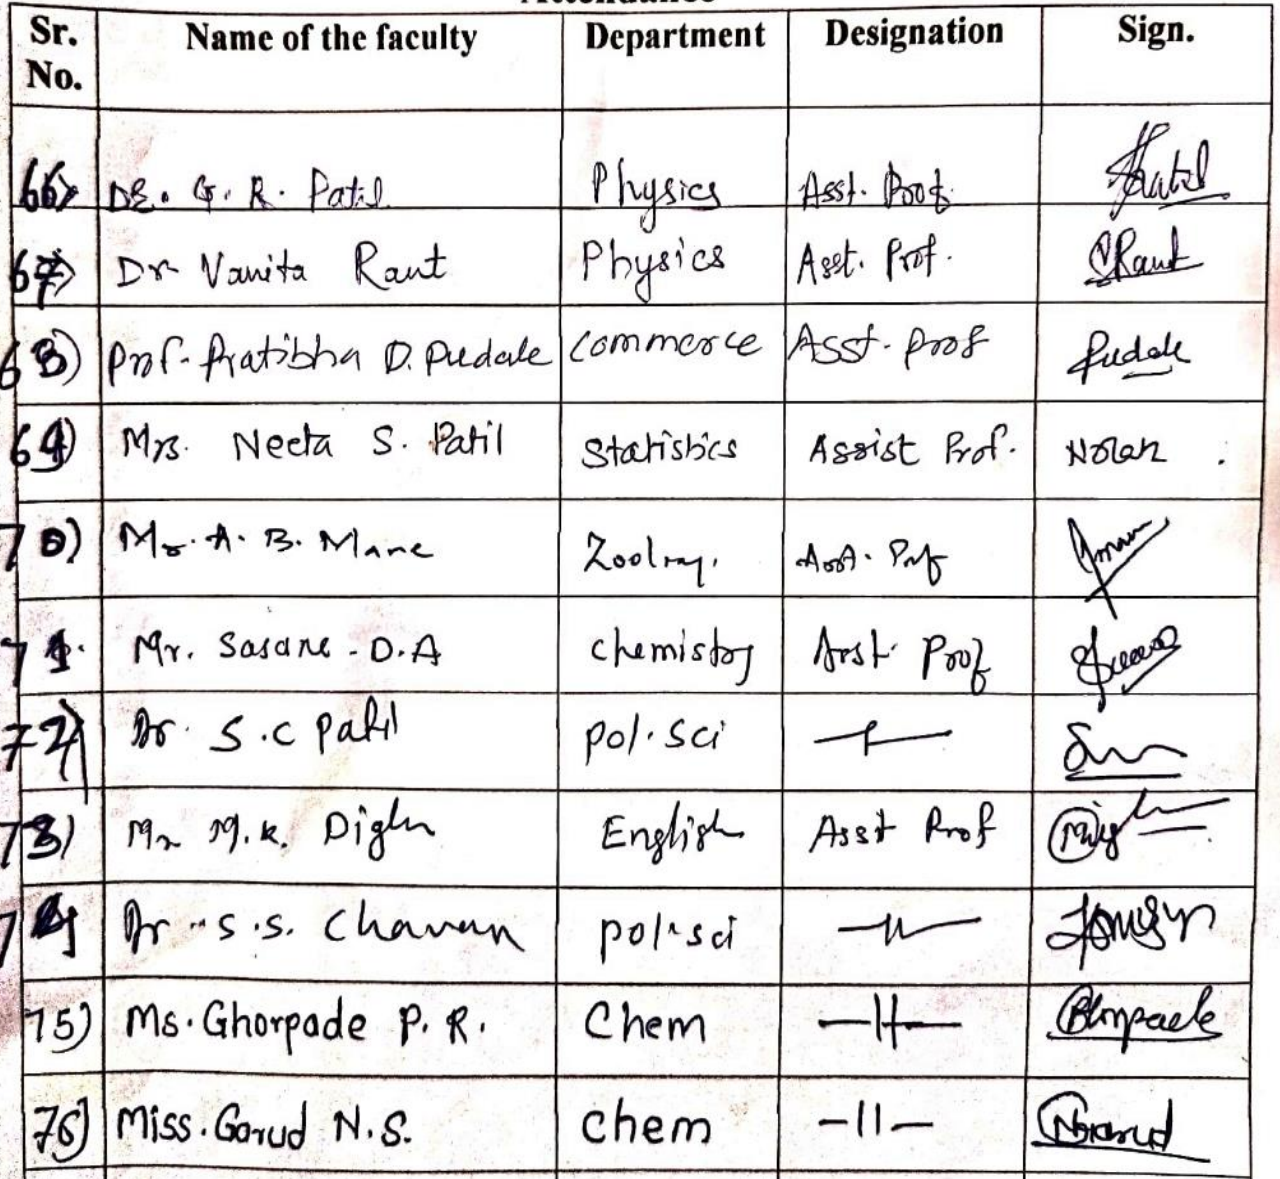 Sr. No. Name of the faculty Department Designation Sign.
66) DR. G. R. Patil Physics Asst. Prof.
67) Dr Vanita Raut Physics Asst. Prof. VRaut
68) Prof. Pratibha D. Pudale Commerce Asst. prof Pudale
69) Mrs. Neeta S. Patil Statistics Assist Prof.
70) Mr. A. B. Mane Zoology. Asst. Prof
71. Mr. Sasane - D.A chemistry Asst. Prof
72) Dr. S.C Patil pol. Sci —"—
73) Mr M.K. Dighe English Asst Prof
74) Dr. S.S. Chavan pol. sci —"—
75) Ms. Ghorpade P. R. Chem —11— Ghorpade
76) Miss. Garud N.S. chem —11— NGarud